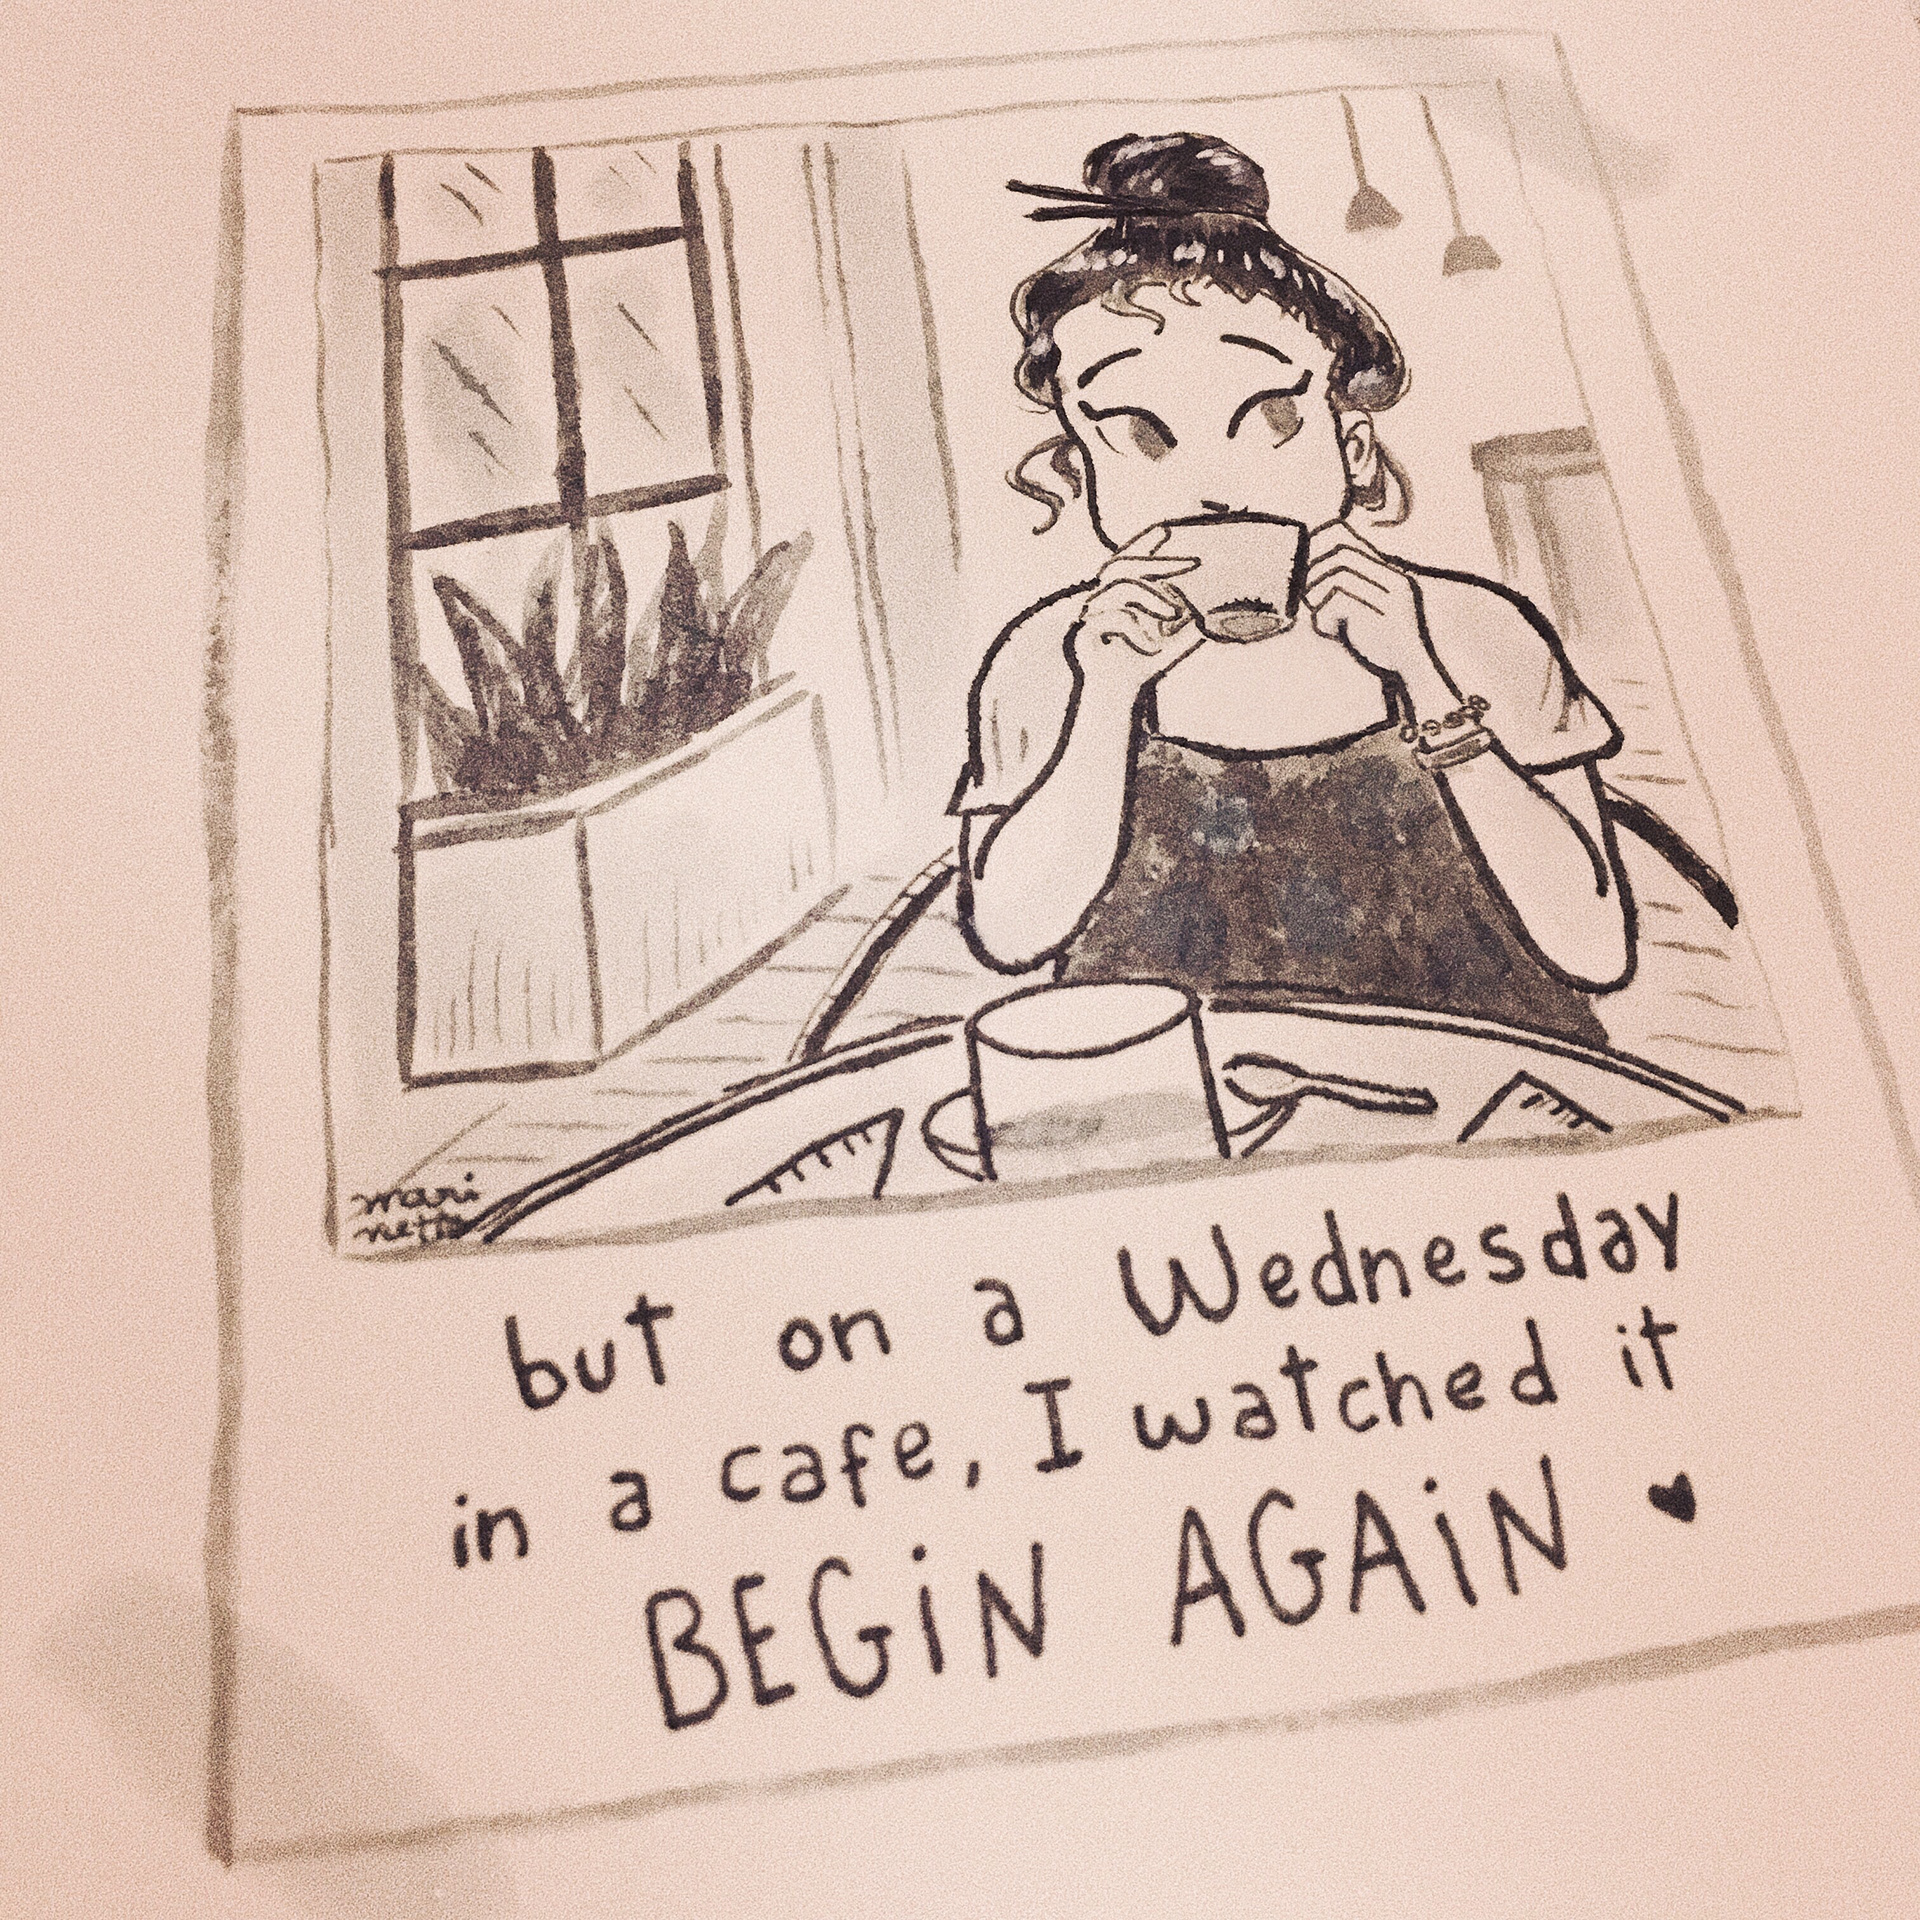 mari
netto
but on a Wednesday
in a cafe, I watched it
BEGiN AGAiN ♥